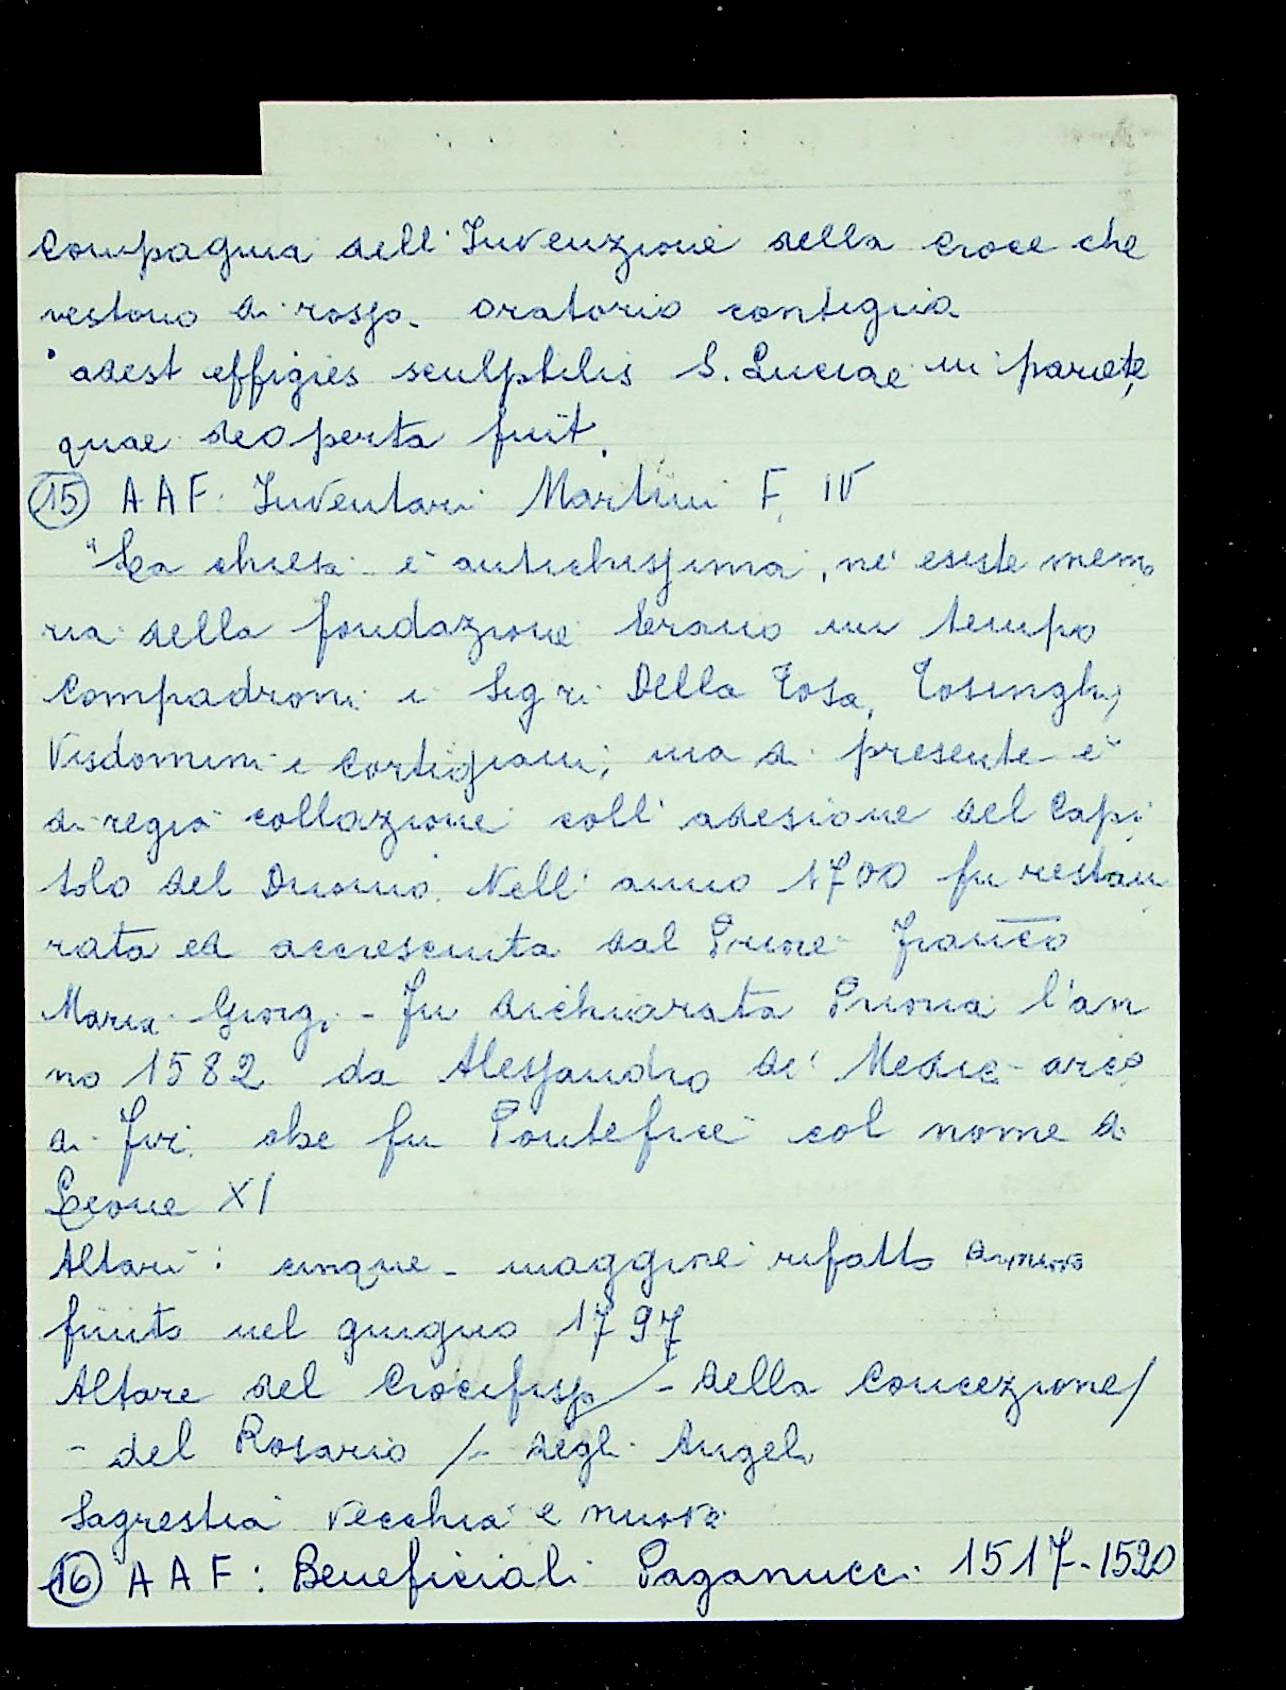 Compagnia dell'Invenzione della Croce che
vestono di rosso. Oratorio contiguo
adest effigies sculptilis S. Luciae in pariete,
quae deoperta fuit.
(15) AAF: Inventari Martini F. IV
"La chiesa è antichissima, nè esiste memo
ria della fondazione. Erano un tempo
Compadroni i Sigri Della Tosa, Tosinghi,
Visdomini e Cortigiani; ma di presente è
di regia collazione coll'adesione del Capi
tolo del Duomo. Nell'anno 1700 fu restau
rata ed accresciuta dal Priore Franco
Maria Giorgi - Fu dichiarata Prioria l'an
no 1582 da Alessandro de' Medici arco
di Fir. che fu Pontefice col nome di
Leone XI
Altari: cinque - maggiore rifatto
finito nel giugno 1797
Altare del Crocifisso / - della Concezione /
- del Rosario / - degli Angeli
Sagrestia vecchia e nuova
(16) AAF: Beneficiali Paganucci 1517-1520